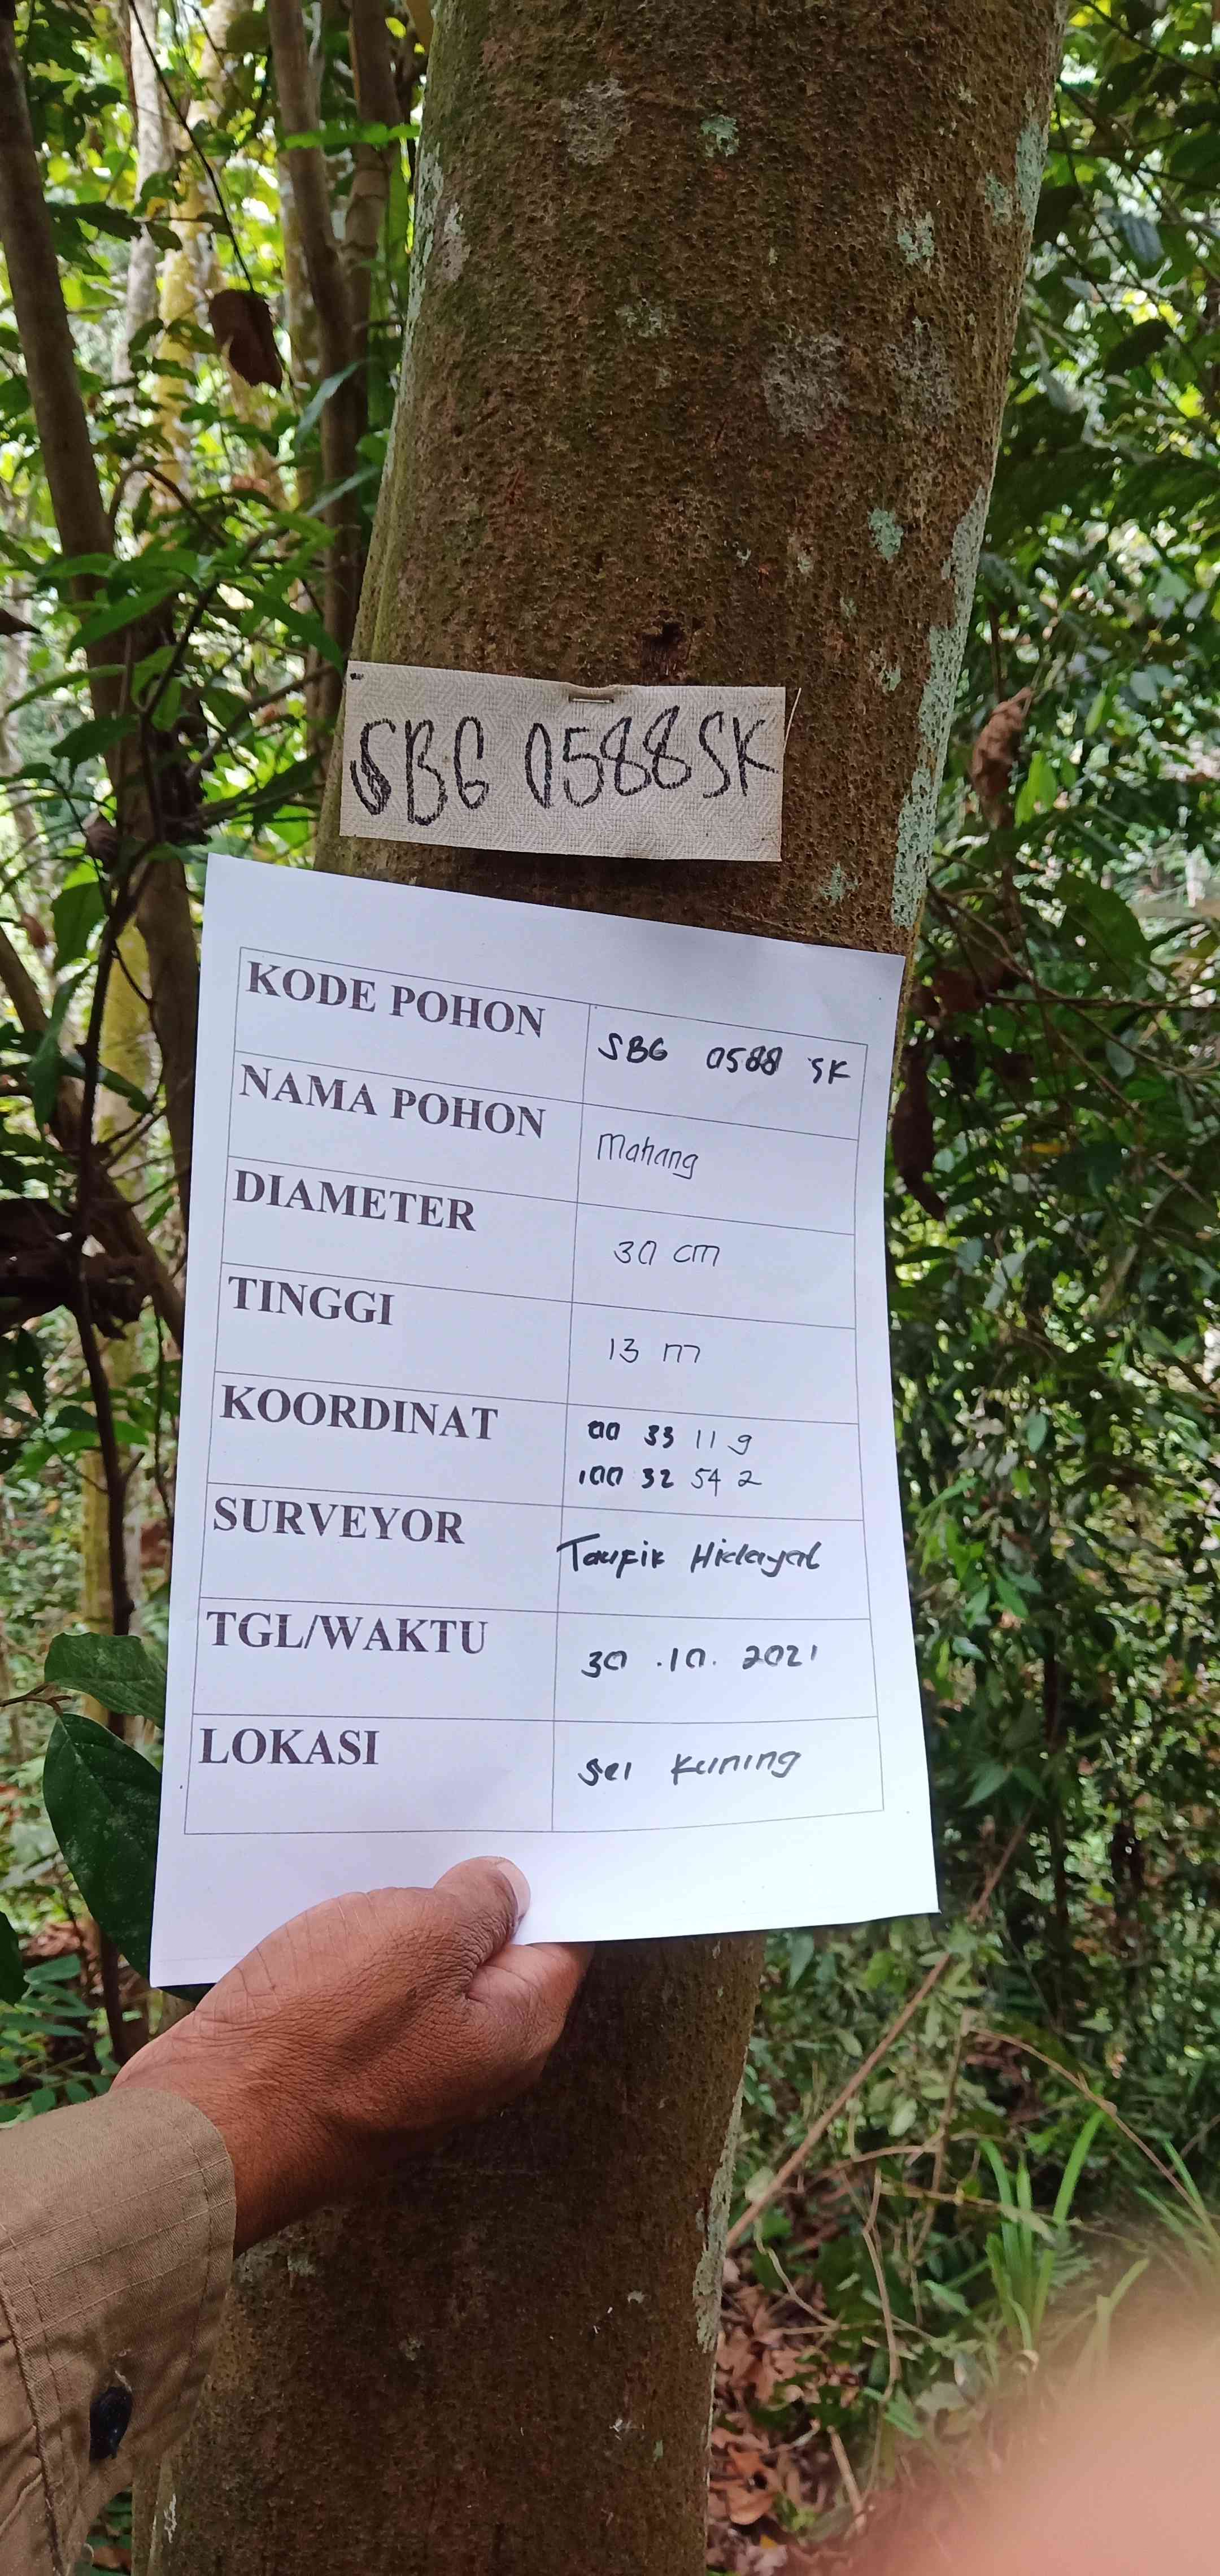 SBG 0588SK
KODE POHON SBG 0588 SK
NAMA POHON Mahang
DIAMETER 30 cm
TINGGI 13 m
KOORDINAT 00 33 11 9
100 32 54 2
SURVEYOR Taufik Hidayat
TGL/WAKTU 30 .10. 2021
LOKASI Sei Kuning